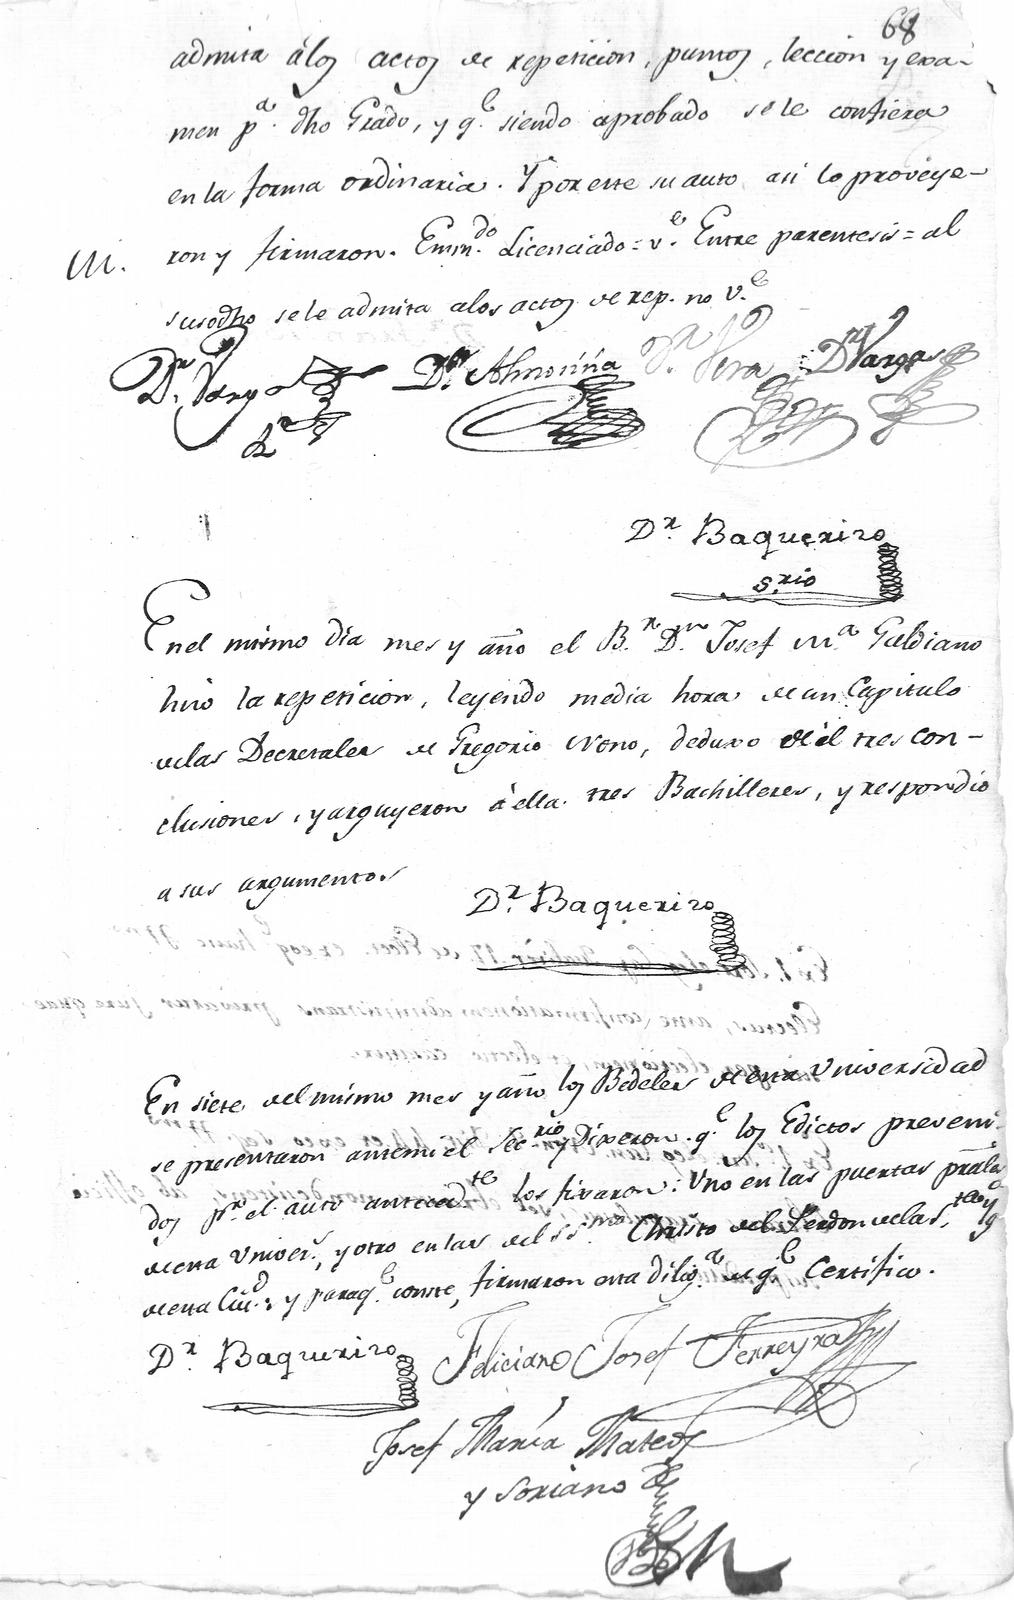 68
admita álos actos de repeticion, puntos, leccion y exa-
men pa. dho Grado, y qe. siendo aprobado sele confiera
en la forma ordinaria. Y por este su auto asi lo proveye-
ron y firmaron. Emm.do Licenciado = ve. Entre parentesis = al
M.
susodho sele admita alos actos de rep. no ve.
Dr. Vargas Dr. Almoiña Dr. Vera Dr. Vargas
Dr. Baqueriso
Srio
En el mismo dia mes y año el Br. Dn. Josef Ma. Galdiano
hiso la repeticion, leyendo media hora de un Capitulo
delas Decretales de Gregorio Nono, deduxo de el tres con-
clusiones, y arguyeron á ella tres Bachilleres, y respondió
a sus argumentos
Dr. Baqueriso
En siete del mismo mes y año los Bedeles de esta Universidad
se presentaron antemi el Secrio. y Dixeron qe. los Edictos preveni-
dos pr. el auto antecedte. los fixaron: Uno en las puertas prales
de esta Univerd., y otro en las del SSmo. Christo del Perdon delas
de esta Ciud.; y paraqe. conste, firmaron esta diliga. de qe. Certifico.
Dr. Baqueriso Feliciano Josef Ferreyra
Josef María Mateos
y Soriano